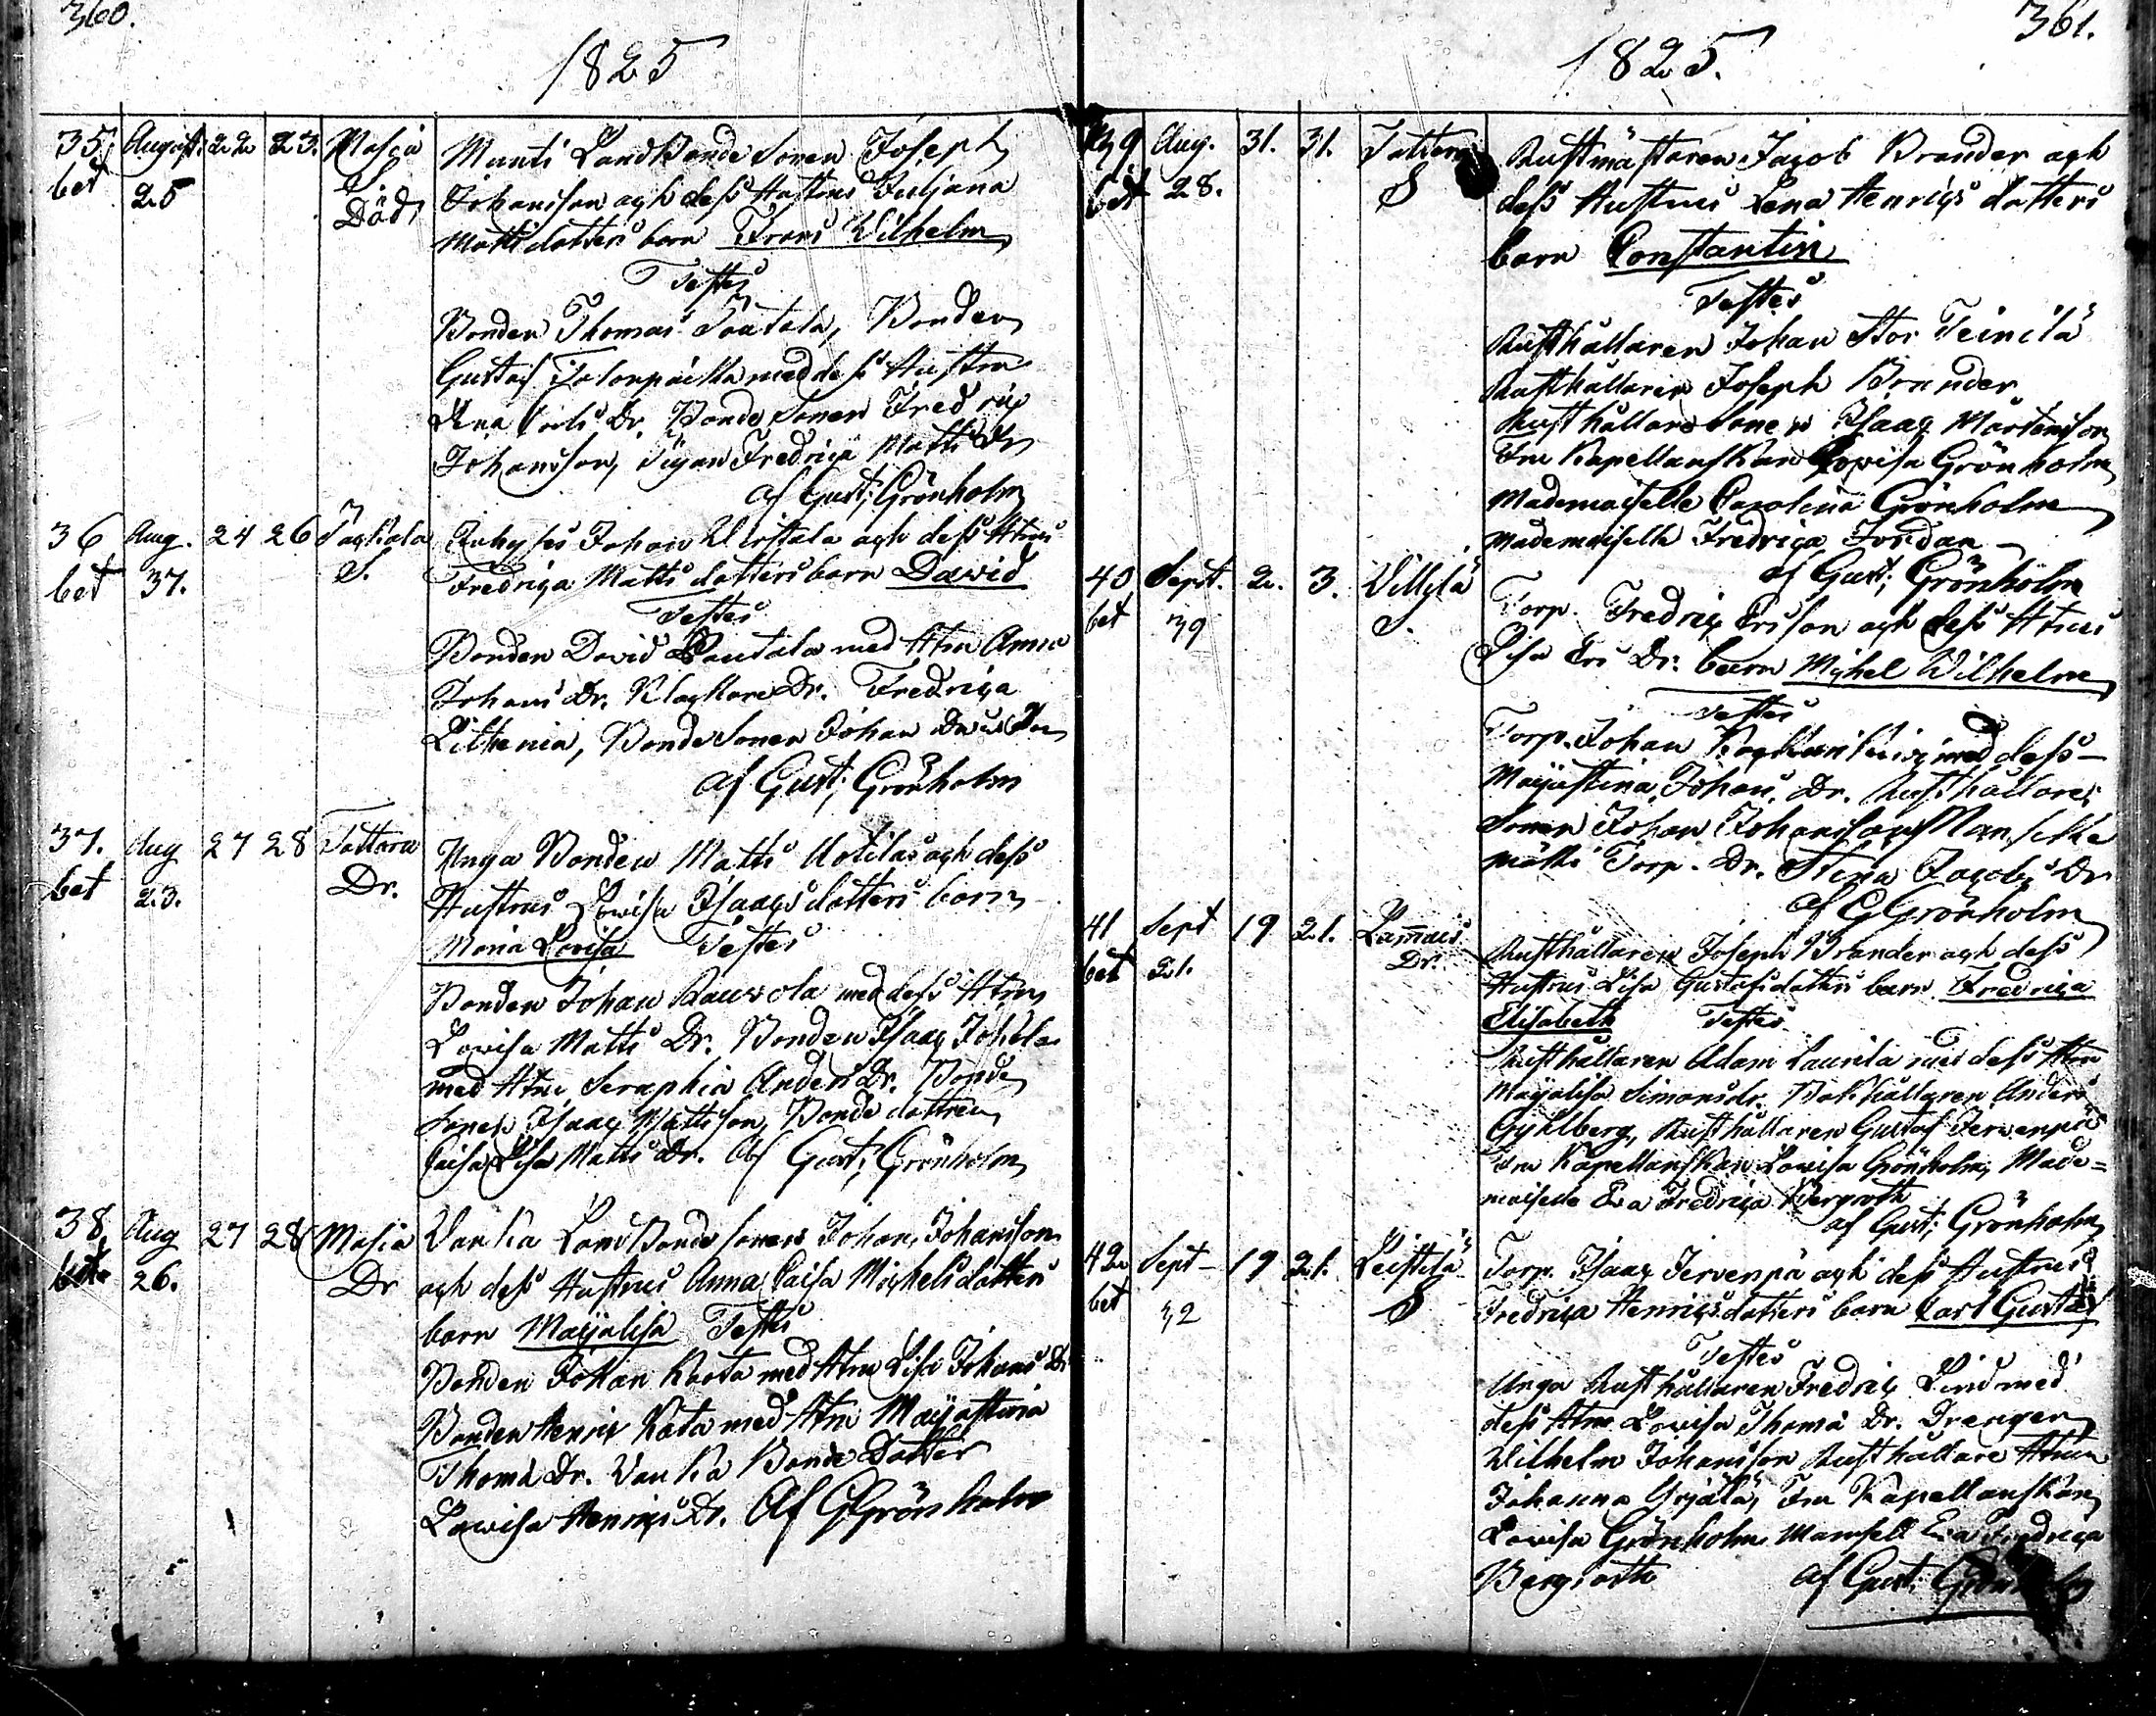 360.
1825
35 August. 22 23. Masia Munti Landbonde Sonen Joseph
bet 25 S Johansson och dess Hustrus Juljana
Död Matts dotters barn Frans Wilhelm
Testes
Bonden Thomas Toutala, Bonden
Gustaf med dess Hustru
Lena Dr. Bonde Sonen Fredric
Johansson, Pigan Fredrica Matts Dr
af Gust: Grönholm
36 Aug. 24 26 Johan och dess Hustrus
bet 37. S. Fredrica Matts dotters barn David
Testes
Bonden David med Hru Anna
Johans Dr. Klockare Dr. Fredrica
Lithenia, Bonde Sonen Johan
af Gust; Grönholm
37. Aug 27 28 Tattara Unga Bonden Matts Uotila och dess
bet 23. Dr. Hustrus Lovisa Isaacs dotters barn
Maria Lovisa Testes
Bonden Johan med dess Hru
Lovisa Matts Dr. Bonden Isaac
med Hru Seraphia Anders Dr. Bonde
sonen Isaac Mattsson, Bonde dottren
Caisa Lisa Matts Dr. Af Gust; Grönholm
38 Aug 27 28 Masia Landbonde sonens Johan Johansson
bet 26. Dr och dess Hustrus Anna Caisa Michelsdotters
barn Majalisa Testes
Bonden Johan med Hru Lisa Johans Dr
Bonden Henric med Hru Majastina
Thoma Dr. Bonde Dotter
Lovisa Henrics Dr. Af G Grönholm
361.
1825.
39 Aug. 31. 31. Tattara Rustmästaren Jacob Brander och
bet 28. S dess Hustrus Lena Henrics dotters
barn Constantin
Testes
Rusthållaren Johan Stor Teinilä
Rusthållaren Joseph Brander
Rusthållare Sonen Isaac Mårtensson
Fru Kapellanskan Lovisa Grönholm
Mademoiselle Carolina Grönholm
Mademoiselle Fredrica Jordan
af Gust; Grönholm
40 Sept. 2. 3. Villilä Torp. Fredric Ersson och dess Hrus
bet 39 S. Lisa Ers Dr. barn Michel Wilhelm
Testes
Torp. Johan med dess
Majastina Johans Dr. Rusthållare
Sonen Johan Johansson
Torp. Dr. Stina Jacobs Dr
af G Grönholm
41 Sept 19 21. Lammais Rusthållaren Joseph Brander och dess
bet 21. Dr. Hustrus Lisa Gustafsdotters barn Fredrica
Elisabeth Testes
Rusthållaren Adam Laurila med dess Hru
Majalisa Simonsdr. Bokhållaren Anders
Gyhlberg, Rusthållaren Gustaf Jervenpä
Fru Kapellanskan Lovisa Grönholm, Made=
moiselle Eva Fredrica Bergroth
af Gust; Grönholm
42 Sept 19 21. Leistilä Torp. Isaac Jervenpä och dess Hustrus
bet 32 S Fredrica Henrics dotters barn Carl Gustaf
Testes
Unga Rusthållaren Fredric Lind med
dess Hru Lovisa Thoma Dr. Drengen
Wilhelm Johansson Rusthållare Hrun
Johanna Yrjälä, Fru Kapellanskan
Lovisa Grönholm Mamsell Eva Fredrica
Bergroth af Gust: Grönholm